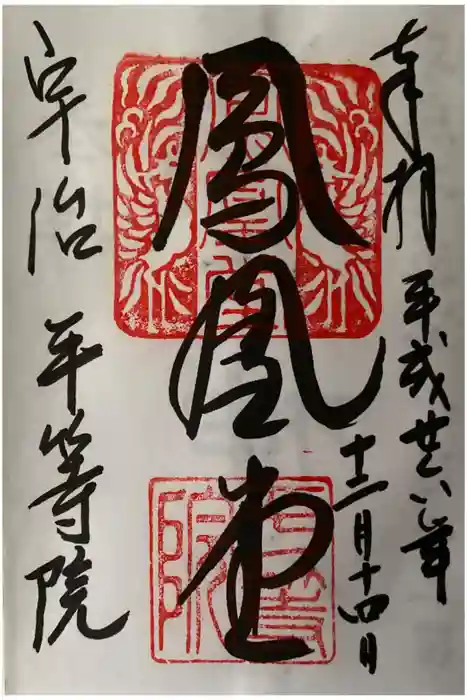 奉拝 平成廿八年
十二月十四日
鳳凰堂
宇治 平等院